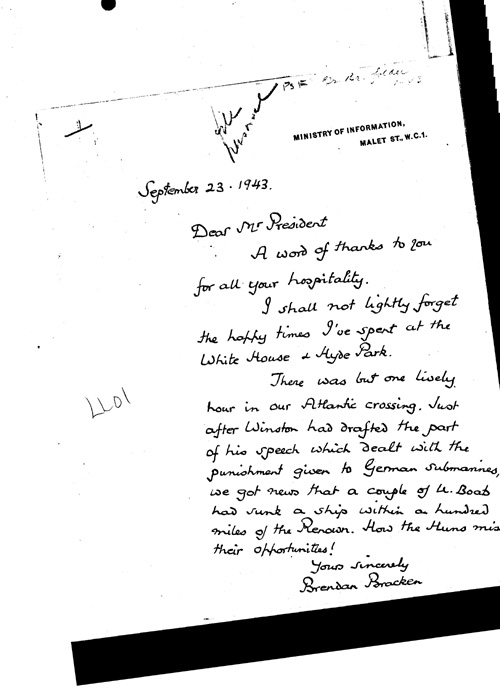 file
personal
PSF
MINISTRY OF INFORMATION,
MALET ST., W.C.1.
September 23 . 1943.
Dear Mr President
A word of thanks to you
for all your hospitality.
I shall not lightly forget
the happy times I've spent at the
White House & Hyde Park.
There was but one lively
hour in our Atlantic crossing. Just
after Winston had drafted the part
of his speech which dealt with the
punishment given to German submarines,
we got news that a couple of U. Boats
had sunk a ship within a hundred
miles of the Renown. How the Huns mis
their opportunities!
Yours sincerely
Brendan Bracken